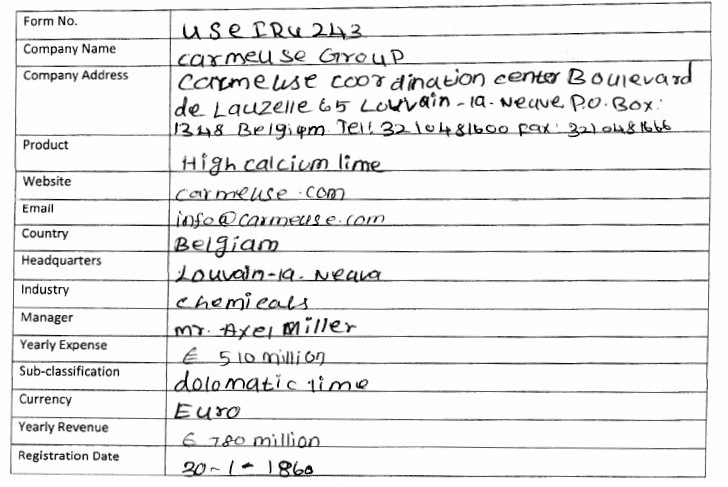 Form No. use IRU 243
Company Name carmeuse Group
Company Address Carmeuse coordination center Boulevard
de Lauzelle 65 Louvain-la-Neuve P.O. Box:
1348 Belgium Tel: 3210481600 Fax: 3210481666
Product High calcium lime
Website carmeuse.com
Email info@carmeuse.com
Country Belgiam
Headquarters Louvain-la-Neava
Industry chemicals
Manager mr. Axel Miller
Yearly Expense € 510 million
Sub-classification dolomatic lime
Currency Euro
Yearly Revenue € 780 million
Registration Date 20-1-1860